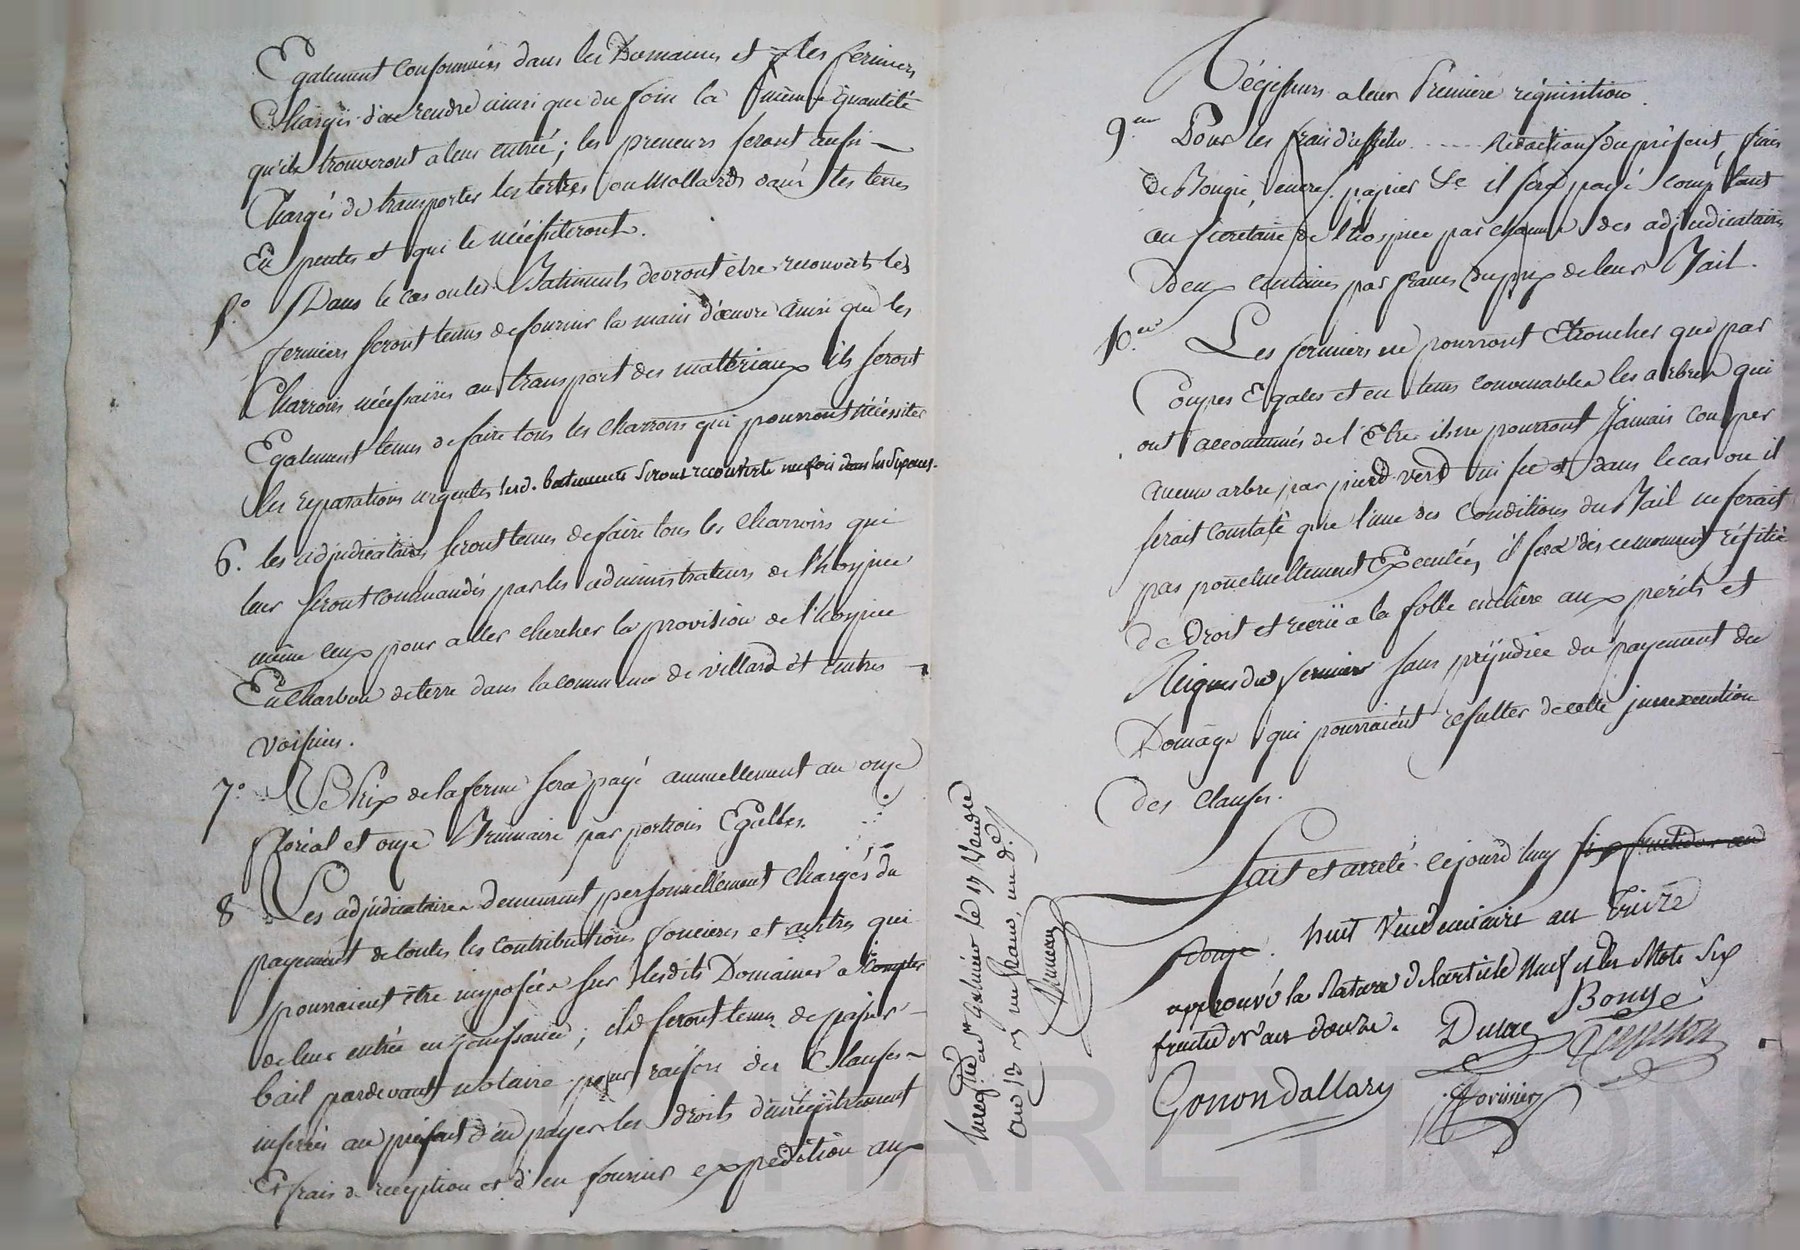 Egalement consommées dans les Domaines et les fermiers
Chargés d'en rendre ainsi que du foin la même quantité
qu'ils trouveront a leur entrée ; les preneurs seront aussi
Chargés de transporter les tertres ou Mollards dans les terres
En pentes et qui le nécessiteront.
5.° Dans le cas ou les Batiments devront être recouverts les
fermiers seront tenus de fournir la main d'œuvre ainsi que les
Charrois nécessaires au transport des matériaux ils seront
Egalement tenus de faire tous les charrois qui pourront nécessiter
les reparations urgentes lesd. batiments seront recouverts une fois dans les six ans.
6. les adjudicataires seront tenus de faire tous les charrois qui
leur seront commandés par les administrateurs de l'hospice
même ceux pour aller chercher la provision de l'hospice
En Charbon de terre dans la commune de villard et autres
voisines.
7.° Le Prix de la ferme sera payé annuellement au onze
floréal et onze Brumaire par portions Egalles.
8 Les adjudicataires demeurent personnellement chargés du
payement de toutes les contributions foncieres et autres qui
pourraient être imposées sur lesdits Domaines a compter
de leur entrée en jouissance ; ils seront tenus de passer
bail pardevant notaire pour raison des Clauses
inserées au présent d'en payer les droits d'enrégistrement
Et frais de reception et d'en fournir expédition aux
Régisseurs a leur Première réquisition.
9.em Pour les frais d'affiche ...... Rédaction du présent, frais
de Bougie, encre, papier &c il sera payé comptant
au secretaire de l'hospice par chacun des adjudicataires
Deux centimes par franc du prix de leur Bail.
10.em Les fermiers ne pourront Etroncher que par
Coupes Egales et en tems convenables les arbres qui
ont accoutumés de l'Etre ils ne pourront Jamais couper
aucun arbre par pied vert ni sec et dans le cas ou il
serait constaté que l'une des Conditions du Bail ne serait
pas ponctuellement Executée, il sera dès ce moment résilié
de Droit et recrié a la folle enchère aux périls et
Risques du fermier sans préjudice du payement du
Domage qui pourraient resulter de cette inexecution
des clauses.
Fait et arrêté cejourd'huy six fructidor an
douze. huit Vendemiaire an treize
approuvé la Rature de larticle Neuf et les Mots Six
fructidor an douze.
Bouyé
Durac
Gonon Dallary
Forissier
Enregistré a St Galmier le 17 Vendre
an 13 un franc, un d.e